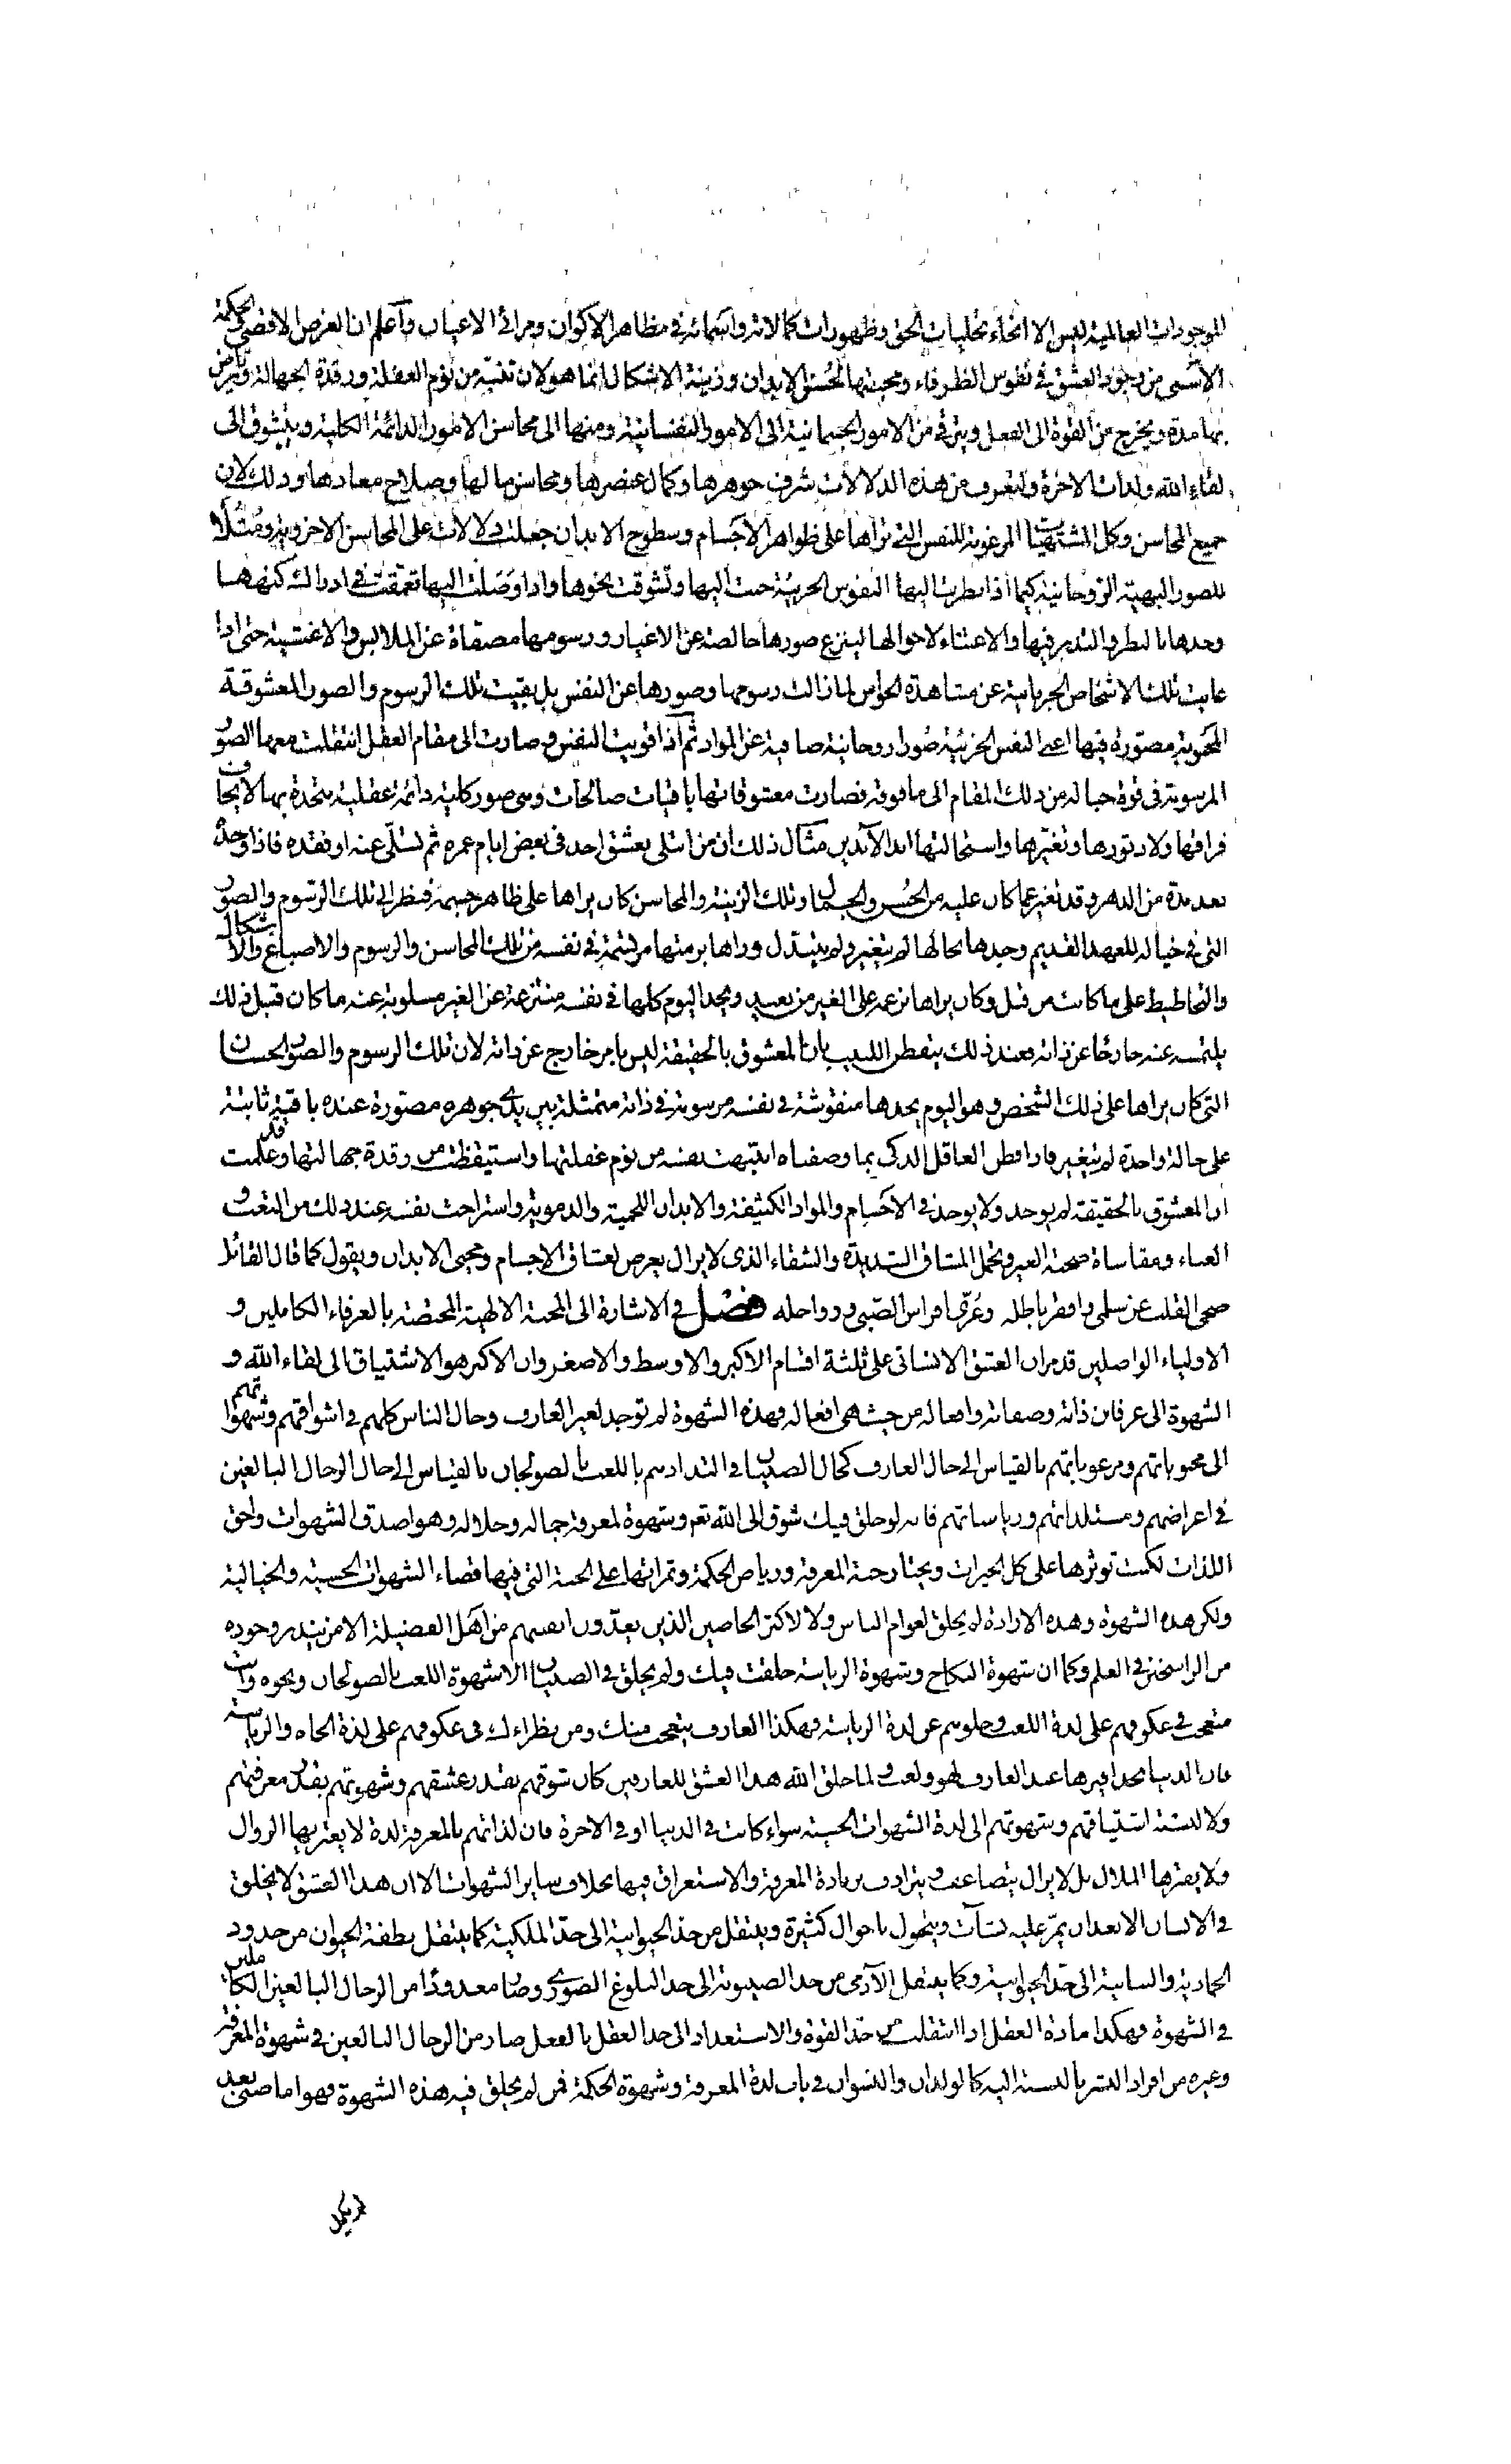 الموجودات العالمية ليس الا انحاء تجليات الحق وظهورات كمالاته واسمائه في مظاهر الاكوان ومرائي الاعيان واعلم ان الغرض الاقصى والحكمة
الاسنى من وجود العشق في نفوس الظرفاء ومحبتها لحسن الابدان وزينة الاشكال انما هو لان تنتبه من نوم الغفلة ورقدة الجهالة وترتاض
بها مدة ويخرج من القوة الى الفعل ويترقى من الامور الجسمانية الى الامور النفسانية ومنها الى محاسن الامور الدائمة الكلية ويتشوق الى
لقاء الله ولذات الاخرة ولتعرف من هذه الدلالات شرف جوهرها وكمال عنصرها ومحاسن مالها وصلاح معادها وذلك لان
جميع المحاسن وكل المشتهيات المرغوبة للنفس التي تراها على ظواهر الاجسام وسطوح الابدان جعلت دلالات على المحاسن الاخروية ومثلا
للصور البهية الروحانية كيما اذا نظرت اليها النفوس الجزئية حنت اليها وتشوقت نحوها واذا وصلت اليها تعمقت في ادراك كنهها
وحدها بالنظر والتدبر فيها والاعتناء لاحوالها لينزع صورها خالصة عن الاغيار ورسومها مصفاة عن الملابس والاغشية حتى اذا
غابت تلك الاشخاص الجرمانية عن مشاهدة الحواس لما زالت رسومها وصورها عن النفس بل بقيت تلك الرسوم والصور المعشوقة
المحبوبة مصورة فيها اعني النفس الجزئية صورا روحانية صافية عن المواد ثم اذا قويت النفس وصارت الى مقام العقل انتقلت معها الصور
المرسومة في قوة خياله من ذلك المقام الى ما فوقه فصارت معشوقاتها باقيات صالحات وهي صور كلية دائمة عقلية متحدة بها لا يخاف
فراقها ولا دثورها وتغيرها واستحالتها ابد الآبدين مثال ذلك ان من ابتلى بعشق احد في بعض ايام عمره ثم تسلى عنه او فقده فاذا وجده
بعد مدة من الدهر وقد تغير عما كان عليه من الحسن والجمال وتلك الزينة والمحاسن كان يراها على ظاهر جسمه فنظر الى تلك الرسوم والصور
التي في خياله للعهد القديم وجدها بحالها لم يتغير ولم يتبدل وراها برمتها مرتسمة في نفسه من تلك المحاسن والرسوم والاصباغ والاشكال
والتخاطيط على ما كانت من قبل وكان يراها بزعمه على الغير من بعيد ويجد اليوم كلها في نفسه منتزعة عن الغير مسلوبة عنه ما كان قبل ذلك
يلتمسه عنه خارجا عن ذاته فعند ذلك يتفطن اللبيب بان المعشوق بالحقيقة ليس بامر خارج عن ذاته لان تلك الرسوم والصور الحسان
التي كان يراها على ذلك الشخص وهو اليوم يجدها منقوشة في نفسه مرسومة في ذاته متمثلة بين يدي جوهره مصورة عنده باقية ثابتة
على حالة واحدة لم يتغير فاذا فطن العاقل الذكي بما وصفناه انتبهت نفسه من نوم غفلتها واستيقظت من رقدة جهالتها وقد علمت
ان المعشوق بالحقيقة لم يوجد ولا يوجد في الاجسام والمواد الكثيفة والابدان اللحمية والدموية واستراحت نفسه عند ذلك من التعب و
العناء ومقاساة صحبة الغير وتحمل المشاق الشديدة والشقاء الذي لا يزال يعرض لعشاق الاجسام ومحبي الابدان ويقول كما قال القائل
صحى القلب عن سلمى واقصر باطله وعرى افراس الصبى ورواحله فصل في الاشارة الى المحبة الالهية المختصة بالعرفاء الكاملين و
الاولياء الواصلين قد مر ان العشق الانساني على ثلثة اقسام الاكبر والاوسط والاصغر وان الاكبر هو الاشتياق الى لقاء الله و
الشهوة الى عرفان ذاته وصفاته وافعاله من حيث هي افعاله فهذه الشهوة لم توجد لغير العارف وحال الناس كلهم في اشواقهم وشهواتهم
الى محبوباتهم ومرغوباتهم بالقياس الى حال العارف كحال الصبيان في التذاذهم باللعب بالصولجان بالقياس الى حال الرجال البالغين
في اغراضهم ومستلذاتهم ورياساتهم فانه لو خلق فيك شوق الى الله تع وشهوة لمعرفة جماله وجلاله وهو اصدق الشهوات واحق
اللذات لكنت توثرها على كل الخيرات ويختار جنة المعرفة ورياض الحكمة وثمراتها على الجنة التي فيها قضاء الشهوات الحسية والخيالية
ولكن هذه الشهوة وهذه الارادة لم يخلق لعوام الناس ولا لاكثر الخاصين الذين يعدون انفسهم من اهل الفضيلة الا من يندر وجوده
من الراسخين في العلم وكما ان شهوة النكاح وشهوة الرياسة خلقت فيك ولم يخلق في الصبيان الا شهوة اللعب بالصولجان ونحوه وانت
متعجب في عكوفهم على لذة اللعب وخلوهم عن لذة الرياسة فهكذا العارف يتعجب منك ومن نظراءك في عكوفهم على لذة الجاه والرياسة
فان الدنيا بحذافيرها عند العارف لهو ولعب ولما خلق الله هذا العشق للعارفين كان شوقهم بقدر عشقهم وشهوتهم بقدر معرفتهم
ولا نسبة اشتياقهم وشهوتهم الى لذة الشهوات الحسية سواء كانت في الدنيا او في الاخرة فان لذاتهم بالمعرفة لذة لا يعتريها الزوال
ولا يعترها الملال بل لا يزال يتضاعف ويترادف بزيادة المعرفة والاستغراق فيها بخلاف ساير الشهوات الا ان هذا العشق لا يخلق
في الانسان الا بعد ان يمر عليه نشآت ويتحول باحوال كثيرة وينتقل من حد الحيوانية الى حد الملكية كما ينتقل نطفة الحيوان من حدود
الجمادية والنباتية الى حد الحيوانية وكما ينتقل الآدمي من حد الصبيونة الى حد البلوغ الصوري وصار معدودا من الرجال البالغين الكاملين
في الشهوة فهكذا مادة العقل اذا انتقلت من حد القوة والاستعداد الى حد العقل بالفعل صار من الرجال البالغين في شهوة المعرفة
وغيره من افراد البشر بالنسبة اليه كالولدان والنسوان في باب لذة المعرفة وشهوة الحكمة فمن لم يخلق فيه هذه الشهوة فهو اما صبي بعد
لم يكمل